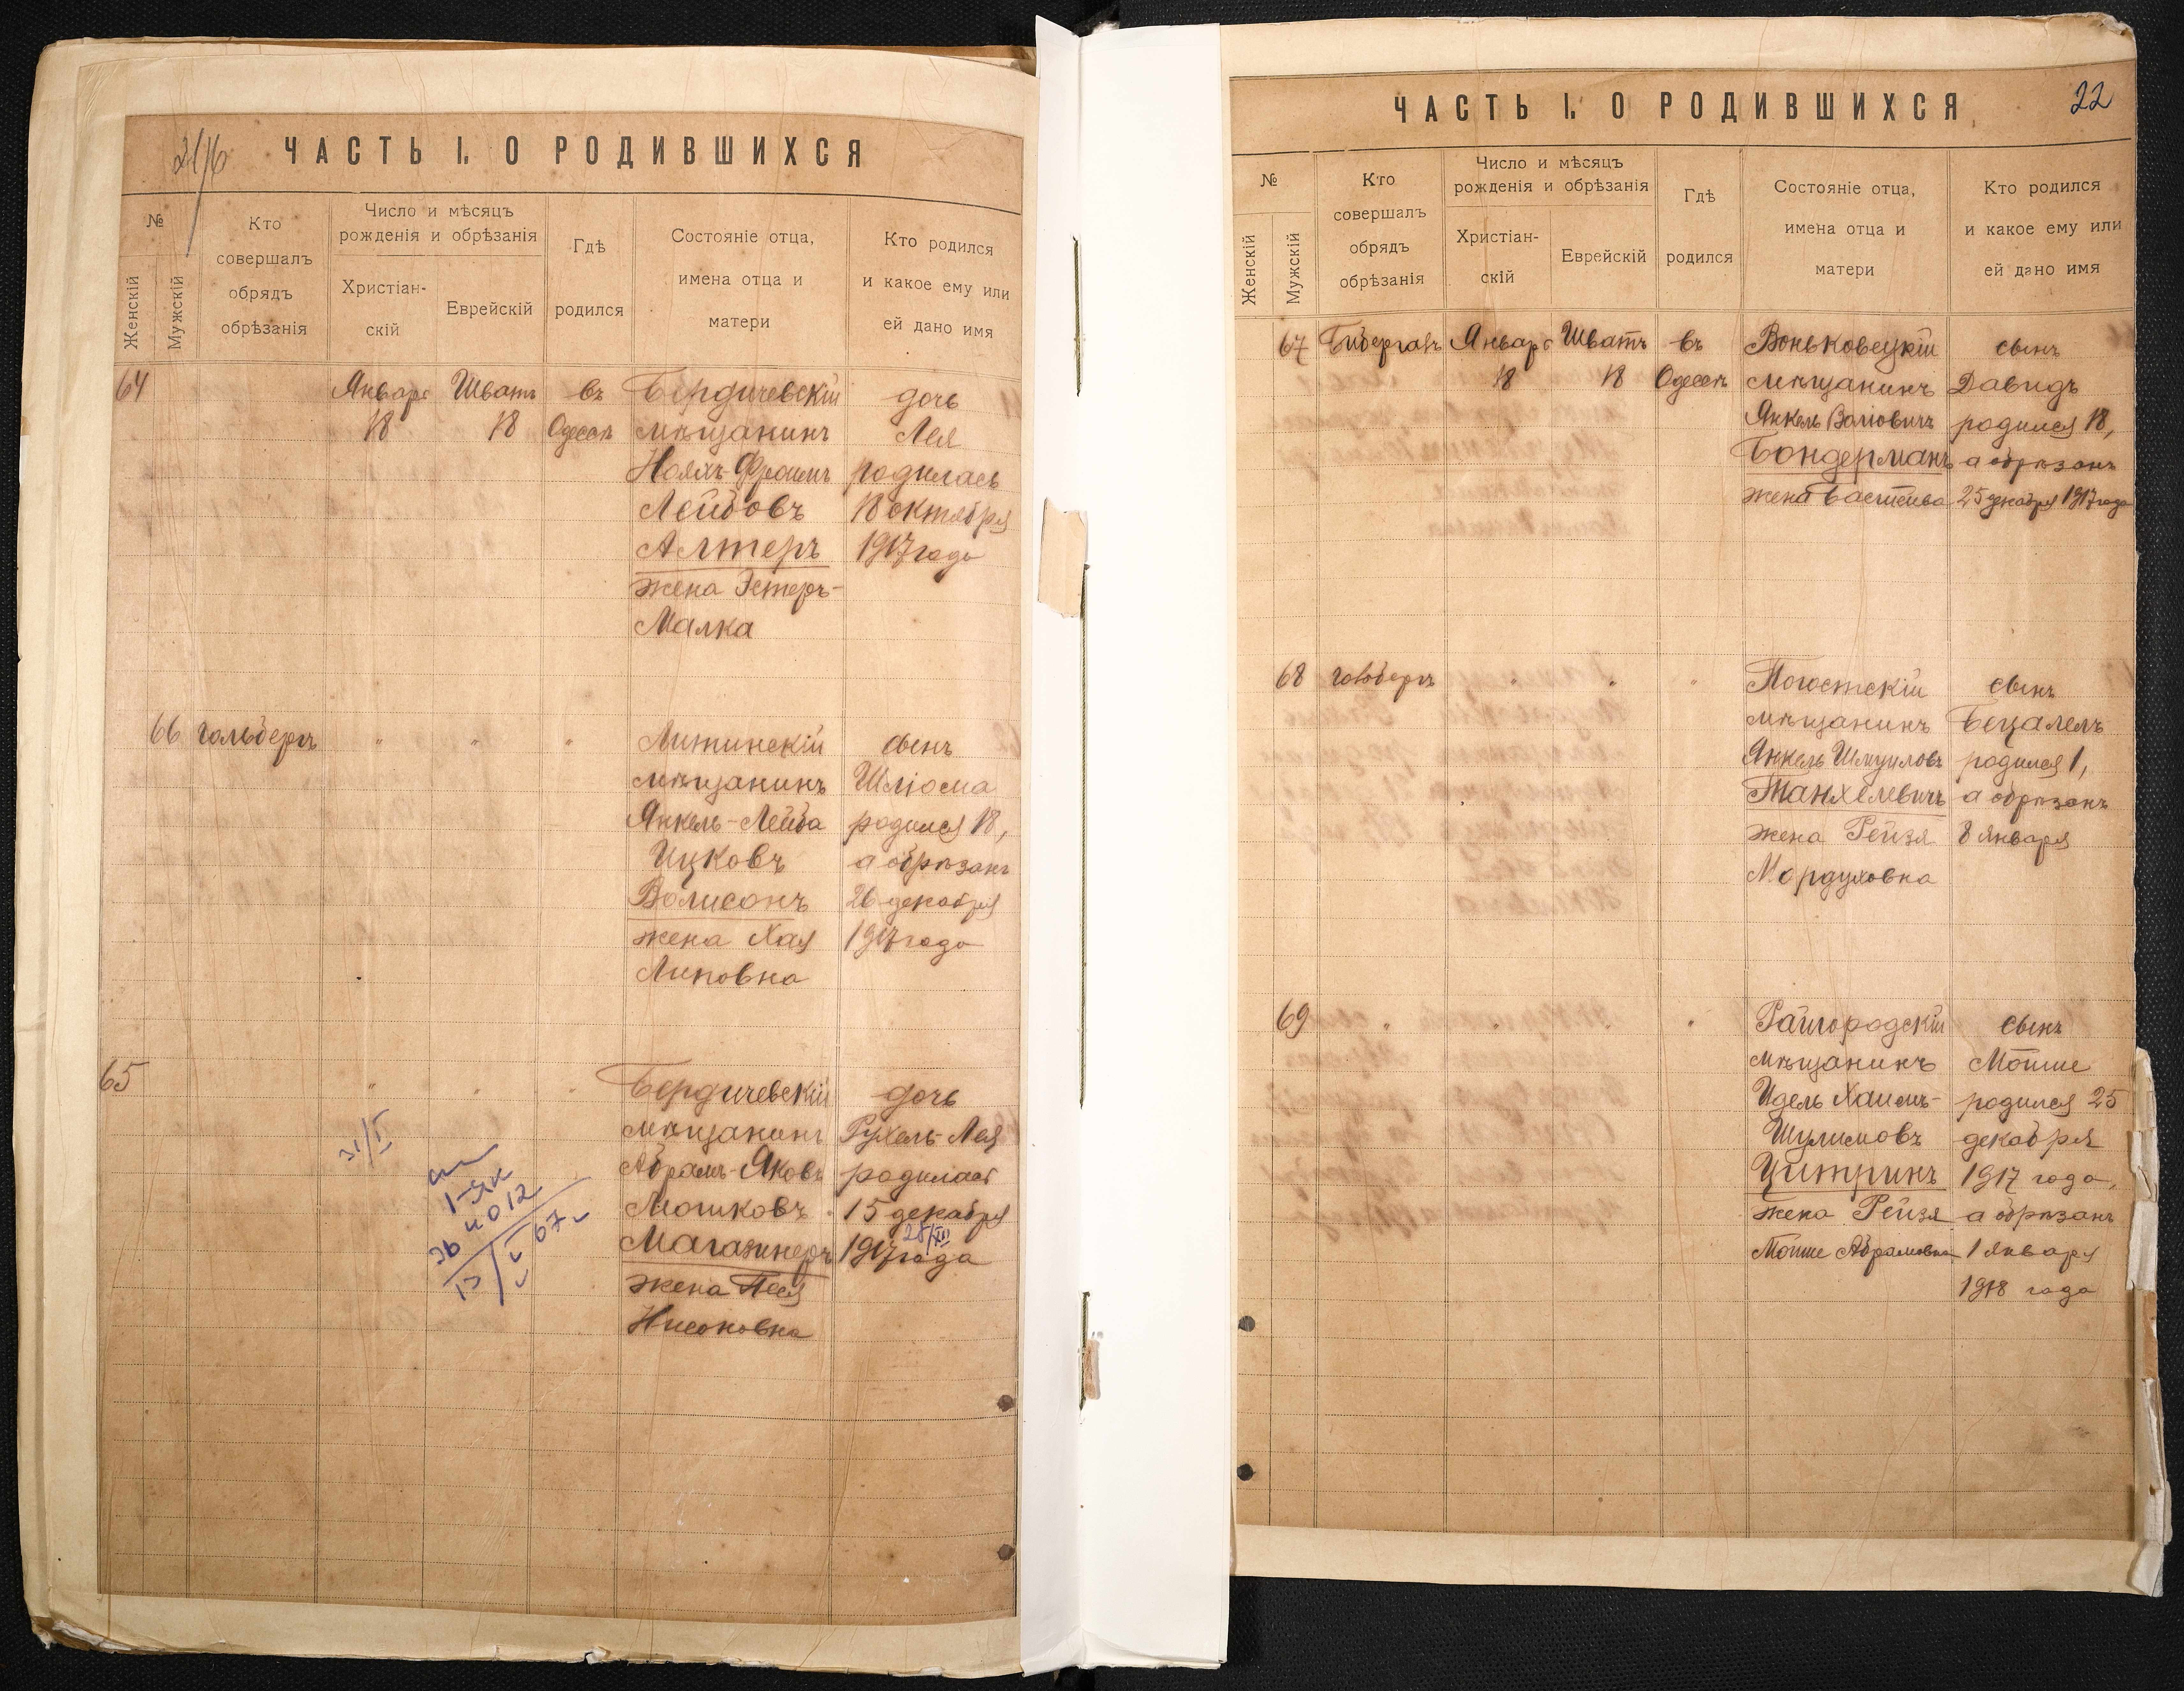 21/6
ЧАСТЬ I. О РОДИВШИХСЯ
№
Женскій
Мужскій
Кто
совершалъ
обрядъ
обрѣзанія
Число и мѣсяцъ
рожденія и обрѣзанія
Христіан-
скій
Еврейскій
Гдѣ
родился
Состояніе отца,
имена отца и
матери
Кто родился
и какое ему или
ей дано имя
64 Январь Шватъ въ Бердичевскій дочь
18 18 Одессѣ мѣщанинъ Лея
Ноахъ-Фроимъ родилась
Лейбовъ 18 октября
Алтеръ 1917 года
жена Эстеръ-
Малка
66 Гольбергъ " " " Литинскій сынъ
мѣщанинъ Шлiома
Янкель-Лейба родился 18,
Ицковъ а обрѣзанъ
Волисонъ 26 декабря
жена Хая 1917 года
Липовна
65 " " " Бердичевскій дочь
мѣщанинъ Рухель-Лея
Абрамъ-Яковъ родилась
Мошковъ 15 декабря
Магазинеръ 1917 года
28/XII
жена Песя
Нисоновна
31/I
22
ЧАСТЬ I. О РОДИВШИХСЯ
№
Женскій
Мужскій
Кто
совершалъ
обрядъ
обрѣзанія
Число и мѣсяцъ
рожденія и обрѣзанія
Христіан-
скій
Еврейскій
Гдѣ
родился
Состояніе отца,
имена отца и
матери
Кто родился
и какое ему или
ей дано имя
67 Бибергалъ Январь Шватъ въ Воньковецкій сынъ
18 18 Одессѣ мѣщанинъ Давидъ
Янкель Волiовичъ родился 18,
Бондерманъ а обрѣзанъ
жена Бастейва 25 декабря 1917 года
68 Гольбергъ " " " Погостскій сынъ
мѣщанинъ Бецалель
Янкель Шмуиловъ родился 1,
Танхелевичъ а обрѣзанъ
жена Рейзя 8 января
Мордуховна
69 " " " " Райгородскій сынъ
мѣщанинъ Мойше
Идель Хаимъ- родился 25
Шулимовъ декабря
Цитринъ 1917 года,
жена Рейзя а обрѣзанъ
Мойше Абрамовна 1 января
1918 года